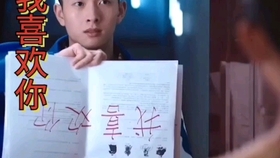 我喜欢你
我喜欢你